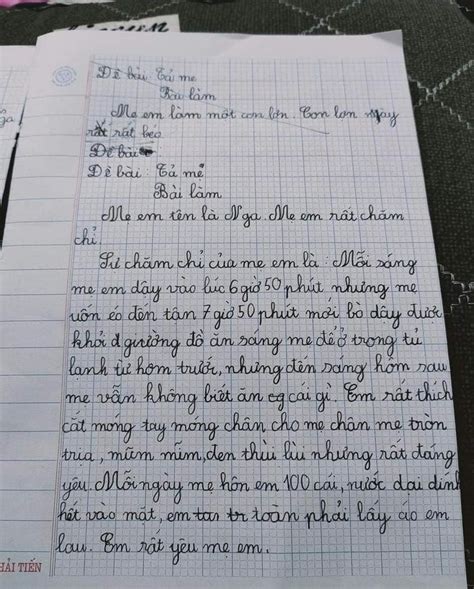 Đề bài: Tả mẹ
Bài làm
Mẹ em làm một con lớn. Con lớn này
rất rất béo
Đề bài
Đề bài: Tả mẹ
Bài làm
Mẹ em tên là Nga. Mẹ em rất chăm
chỉ.
Sự chăm chỉ của mẹ em là: Mỗi sáng
mẹ em dậy vào lúc 6 giờ 50 phút nhưng mẹ
uốn éo đến tân 7 giờ 50 phút mới bò dậy được
khỏi giường đồ ăn sáng mẹ để ở trong tủ
lạnh từ hôm trước, nhưng đến sáng hôm sau
mẹ vẫn không biết ăn cái gì. Em rất thích
cắt móng tay móng chân cho mẹ chân mẹ tròn
trịa, mũm mĩm, đen thùi lùi nhưng rất đáng
yêu. Mỗi ngày mẹ hôn em 100 cái, nước dai dính
hết vào mặt, em toàn phải lấy áo em
lau. Em rất yêu mẹ em.
HẢI TIẾN